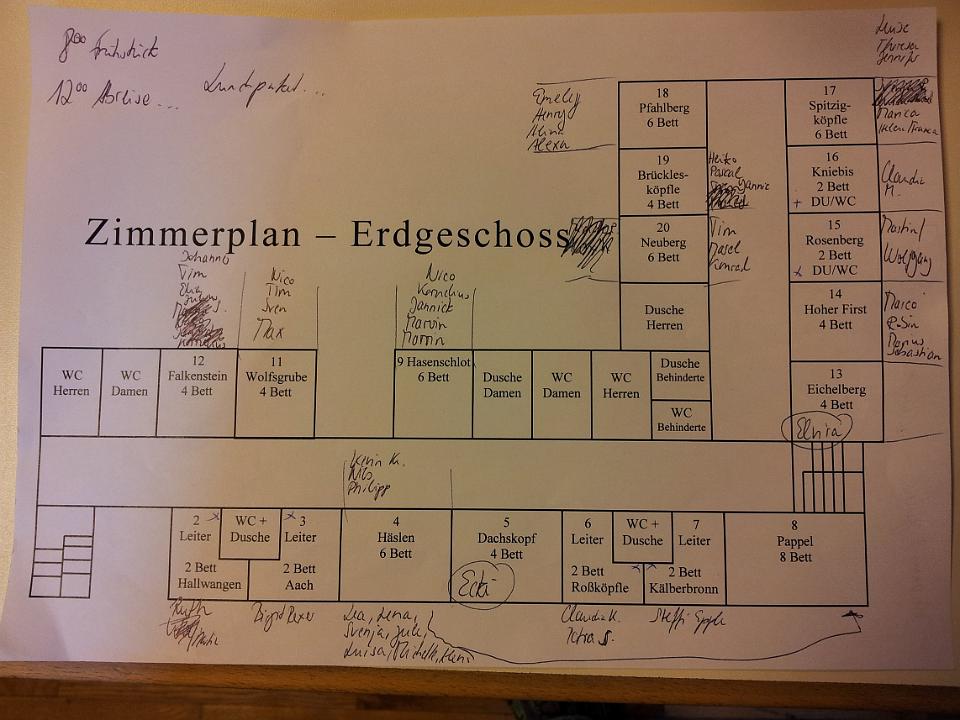 8⁰⁰ Frühstück
12⁰⁰ Abreise... Lunchpaket...
Luise
Theresa
Jennifer
Emely
Henry
Alexa
18
Pfahlberg
6 Bett
17
Spitzig-
köpfle
6 Bett
Marica
19
Brückles-
köpfle
4 Bett
Heiko
Pascal
Jannic
16
Kniebis
2 Bett
+ DU/WC
Claudia
M.
Zimmerplan – Erdgeschoss
20
Neuberg
6 Bett
Tim
Marcel
Konrad
15
Rosenberg
2 Bett
x DU/WC
Martin
Wolfgang
Dusche
Herren
14
Hoher First
4 Bett
Marco
Marius
Sebastian
Johannes
Tim
Nico
Tim
Sven
Max
Nico
Kornelius
Jannick
Marvin
Martin
WC
Herren
WC
Damen
12
Falkenstein
4 Bett
11
Wolfsgrube
4 Bett
9 Hasenschlot
6 Bett
Dusche
Damen
WC
Damen
WC
Herren
Dusche
Behinderte
WC
Behinderte
13
Eichelberg
4 Bett
Elvira
Kevin K.
Nils
Philipp
2 x
Leiter
2 Bett
Hallwangen
WC +
Dusche
x 3
Leiter
2 Bett
Aach
4
Häslen
6 Bett
5
Dachskopf
4 Bett
Ecki
6
Leiter
2 Bett
Roßköpfle
WC +
Dusche
x x
7
Leiter
2 Bett
Kälberbronn
8
Pappel
8 Bett
Ruth
Lea, Lena,
Svenja, Jule,
Luisa, Michelle,
Claudia K.
Petra S.
Steffi Epple